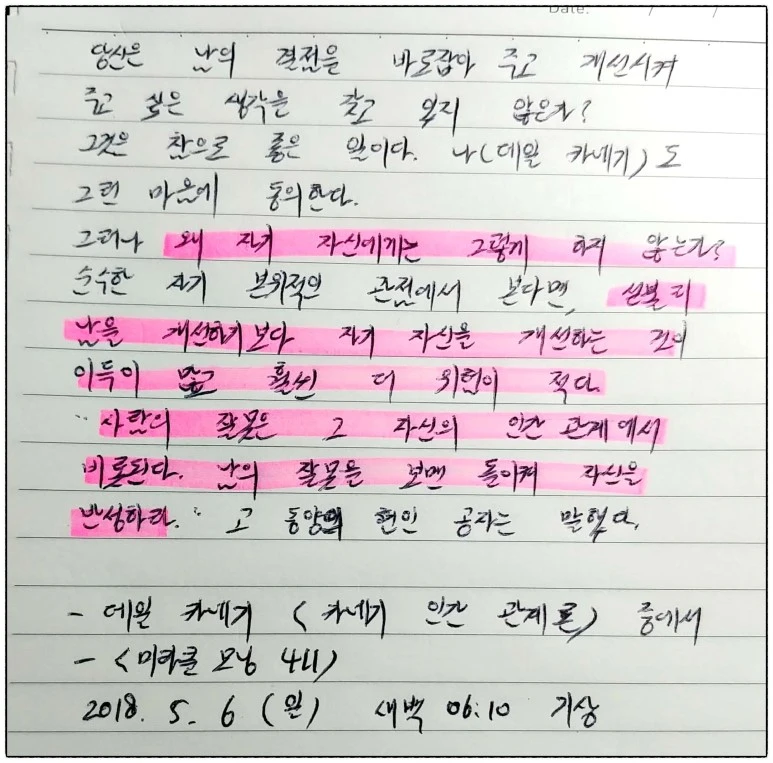 Date: / /
당신은 남의 결점을 바로잡아 주고 개선시켜
주고 싶은 생각을 갖고 있지 않은가?
그것은 참으로 좋은 일이다. 나(데일 카네기)도
그런 마음에 동의한다.
그러나 왜 자기 자신에게는 그렇게 하지 않는가?
순수한 자기 본위적인 관점에서 본다면, 섣불리
남을 개선하기보다 자기 자신을 개선하는 것이
이득이 많고 훨씬 더 위험이 적다.
"사람의 잘못은 그 자신의 인간 관계에서
비롯된다. 남의 잘못을 보면 돌이켜 자신을
반성하라." 고 동양의 현인 공자는 말했다.
- 데일 카네기 <카네기 인간 관계론> 중에서
- <미라클 모닝 411>
2018. 5. 6 (월) 새벽 06:10 기상